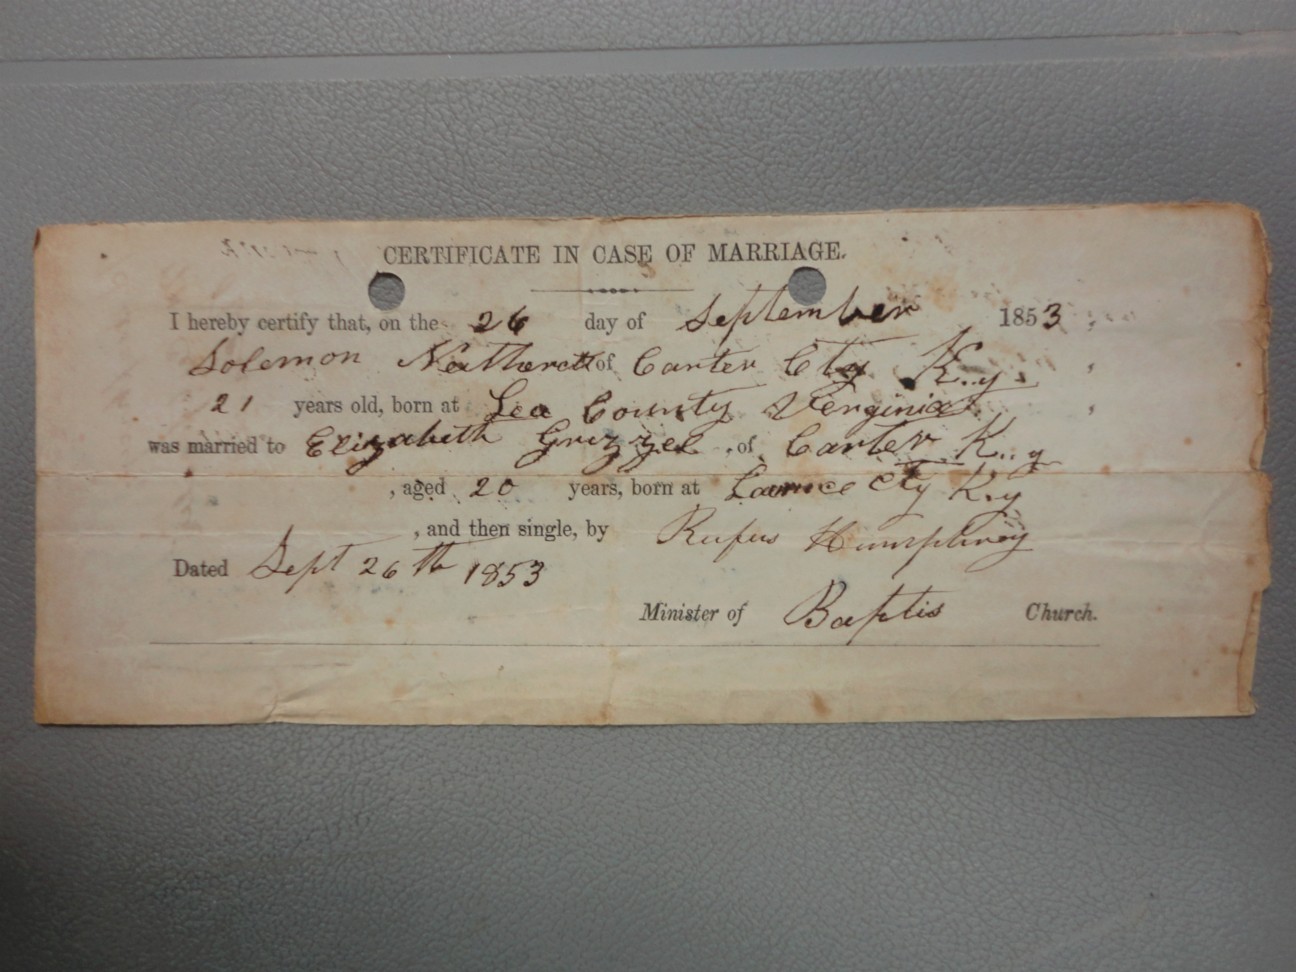 CERTIFICATE IN CASE OF MARRIAGE.
I hereby certify that, on the 26 day of September 1853,
Solemon of Carter Cty K..y,
21 years old, born at Lee County Verginia,
was married to Elizabeth Grizzel, of Carter K..y
, aged 20 years, born at Cty K.y
, and then single, by Rufus Humphrey
Dated Sept 26th 1853
Minister of Baptis Church.